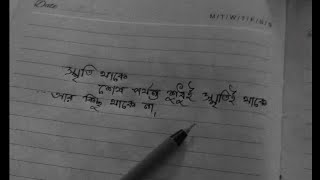 Date
M/T/W/T/F/S/S
স্মৃতি থাকে
শেষ পর্যন্ত শুধুই স্মৃতিই থাকে
... আর কিছু থাকে না,